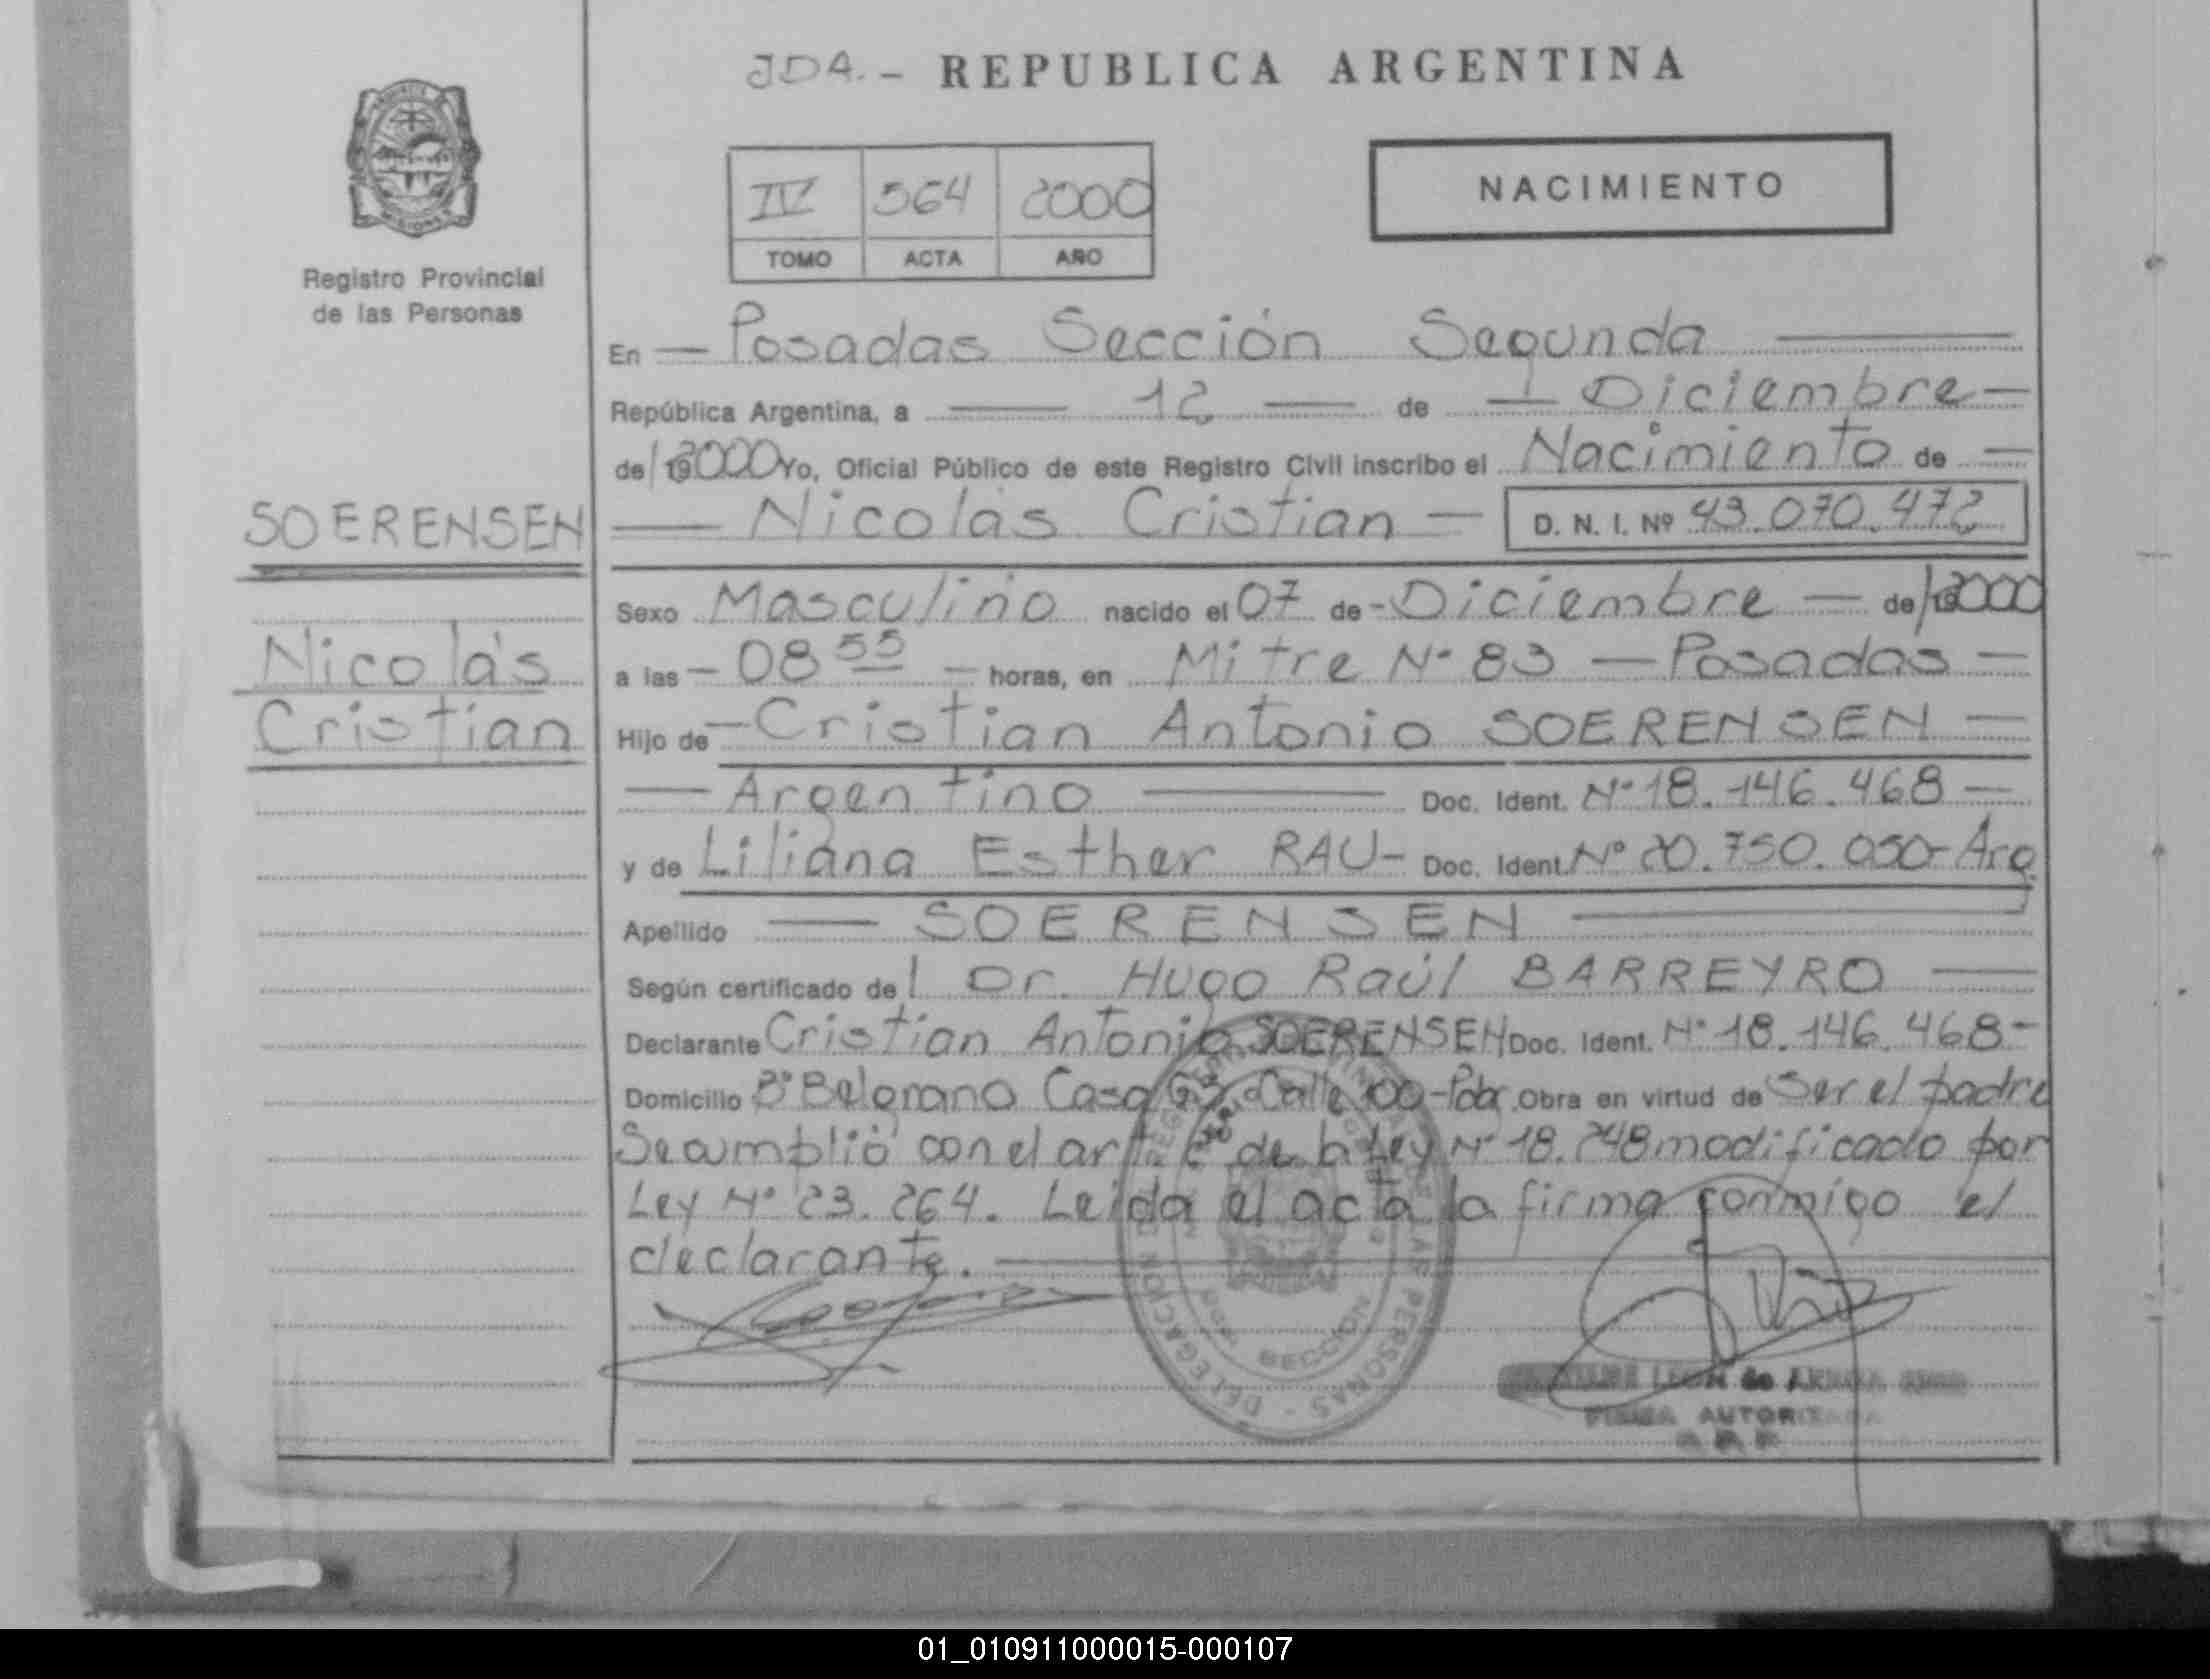 JDA. - REPUBLICA ARGENTINA
IV 564 2000
TOMO ACTA AÑO
NACIMIENTO
Registro Provincial
de las Personas
SOERENSEN
Nicolás
Cristian
En Posadas Sección Segunda
República Argentina, a 12 de Diciembre
de 2000 Yo, Oficial Público de este Registro Civil inscribo el Nacimiento de
Nicolás Cristian D. N. I. Nº 43.070.472
Sexo Masculino nacido el 07 de Diciembre de 2000
a las 08 55 horas, en Mitre Nº 83 - Posadas
Hijo de Cristian Antonio SOERENSEN
Argentino Doc. Ident. Nº 18.146.468
y de Liliana Esther RAU - Doc. Ident. Nº 20.750.050 - Arg
Apellido SOERENSEN
Según certificado del Dr. Hugo Raúl BARREYRO
Declarante Cristian Antonio SOERENSEN Doc. Ident. Nº 18.146.468
Domicilio Bº Belgrano Casa Calle Obra en virtud de Ser el padre
Se cumplió con el art. de la Ley Nº 18.248 modificado por
Ley Nº 23.264. Leida el acta la firma conmigo el
declarante.
DELEGACION PERSONAS
SECCION
LEON de
FIRMA AUTORIZADA
01_010911000015-000107